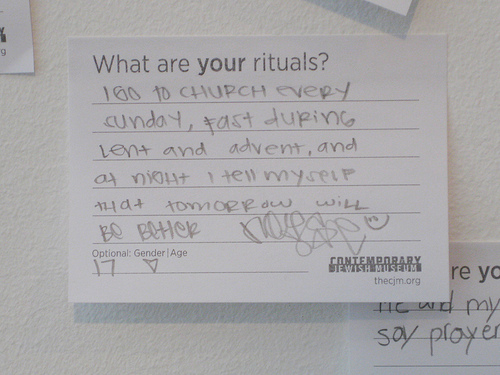 What are your rituals?
I GO TO CHURCH EVERY
sunday, fast DURING
Lent and advent, and
at night I tell myself
that tomorrow will
BE BETTER
Optional: Gender|Age
17
CONTEMPORARY
JEWISH MUSEUM
thecjm.org
re yo
me and my
say prayer
rg